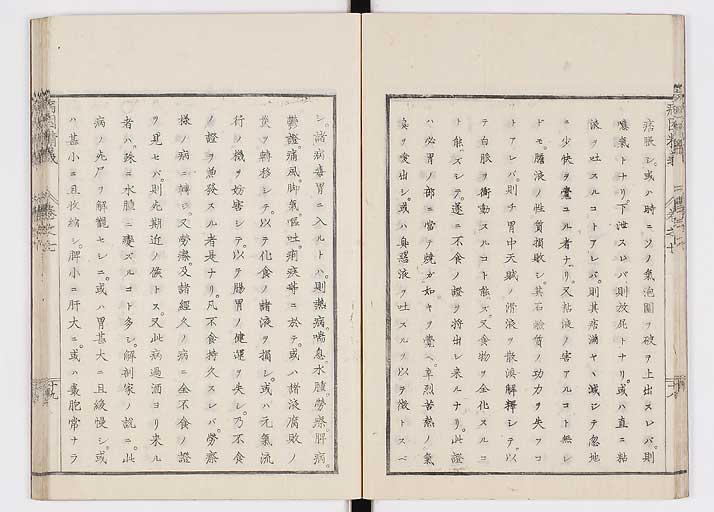 痞脹シ。或ハ時ニソノ氣泡圍ヲ破ヲ上出スレバ。則
噯氣トナリ。下泄スレバ則放屁トナリ。或ハ直ニ粘
液ヲ吐スルコトアレバ。則其痞滿ヤヽ減シテ忽地
ニ少快ヲ覺ユル者ナリ。又粘液ノ害アルコト無レ
ドモ。膽液ノ性質損敗シ。其石鹼質ノ功力ヲ失フコ
トアレバ。則チ胃中天賦ノ滑液ヲ散渙解釋シテ。以
テ白脉ヲ衝動スルコト能ズ。又食物ヲ全化スルコ
ト能ズシテ。遂ニ不食ノ證ヲ將出シ來ルナリ。此證
ハ必胃ノ部ニ當テ燒カ如キヲ覺ヘ。辛烈苦熱ノ氣
臭ヲ噯出シ。或ハ臭惡液ヲ吐スルヲ以テ徵トスベ
シ。諸病毒胃ニ入ルトハ。則諸病喘息。水腫。勞瘵。脾病。
鬱證。痛風。脚氣。嘔吐。痢疾等ニ於テ。或ハ諸液腐敗ノ
毒ヲ轉移シテ。以テ化食ノ諸液ヲ損シ。或ハ元氣流
行ノ機ヲ妨害シテ。以ヲ腸胃ノ健運ヲ失シ。乃不食
ノ證ヲ兼發スル者是ナリ。凡不食持久スレバ。勞瘵
樣ノ病ニ轉シ。又勞瘵。及諸經久ノ病ニ全不食ノ證
ヲ見セバ。則死期近ノ候トス。又此病過酒ヨリ來ル
者ハ。跡ニ水腫ニ變ズルコト多シ。解剖家ノ說ニ。此
病ノ死尸ヲ解觀セシニ。或ハ胃甚大ニ且緩慢シ。或
ハ甚小ニ且收縮シ。脾小ニ肝大ニ。或ハ囊胞常ナラ